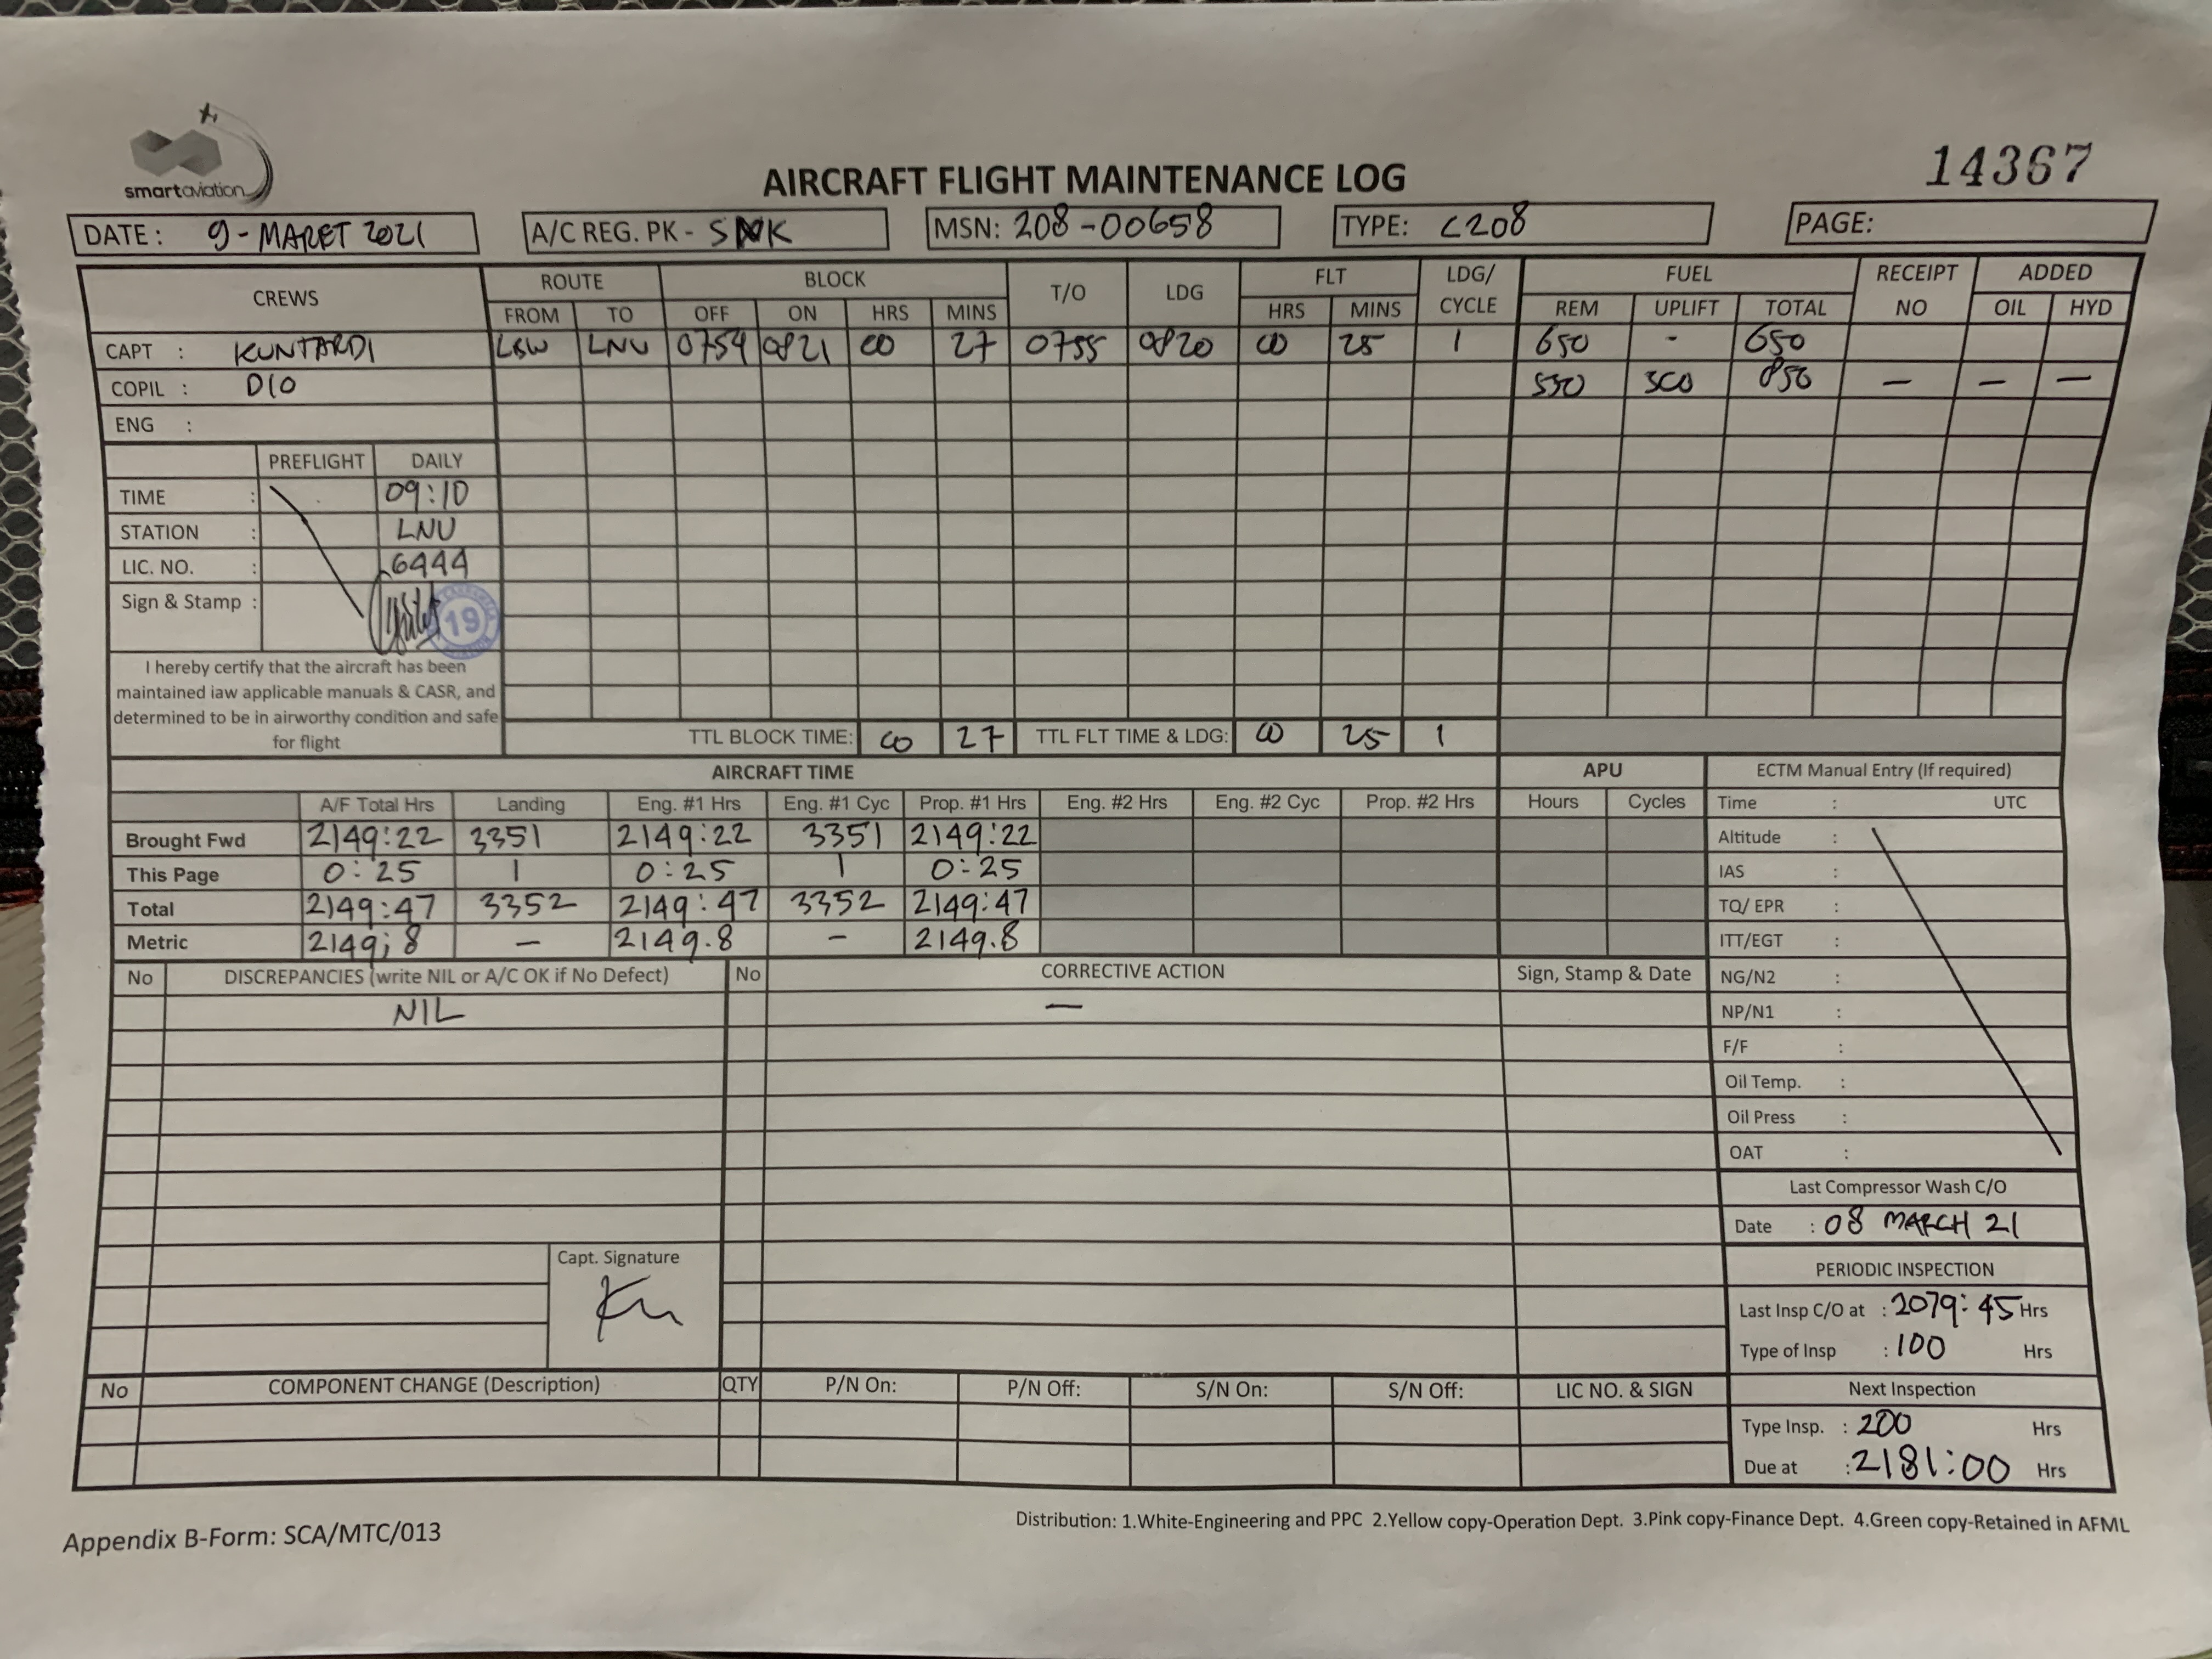 smartaviation
AIRCRAFT FLIGHT MAINTENANCE LOG
14367
DATE: 9-MARET 2021 A/C REG. PK - SNK MSN: 208-00658 TYPE: C208 PAGE:
CREWS ROUTE BLOCK T/O LDG FLT LDG/ CYCLE FUEL RECEIPT NO ADDED
FROM TO OFF ON HRS MINS HRS MINS REM UPLIFT TOTAL OIL HYD
CAPT : KUNTARDI LBW LNU 0754 0821 00 27 0755 0820 00 25 1 650 - 650
COPIL : DIO 550 300 850 — — —
ENG :
PREFLIGHT DAILY
TIME : 09:10
STATION : LNU
LIC. NO. : 6444
Sign & Stamp : 19
I hereby certify that the aircraft has been
maintained iaw applicable manuals & CASR, and
determined to be in airworthy condition and safe
for flight
TTL BLOCK TIME: 00 27 TTL FLT TIME & LDG: 00 25 1
AIRCRAFT TIME APU ECTM Manual Entry (If required)
A/F Total Hrs Landing Eng. #1 Hrs Eng. #1 Cyc Prop. #1 Hrs Eng. #2 Hrs Eng. #2 Cyc Prop. #2 Hrs Hours Cycles Time : UTC
Brought Fwd 2149:22 3351 2149:22 3351 2149:22 Altitude :
This Page 0:25 1 0:25 1 0:25 IAS :
Total 2149:47 3352 2149:47 3352 2149:47 TQ/ EPR :
Metric 2149;8 — 2149.8 — 2149.8 ITT/EGT :
No DISCREPANCIES (write NIL or A/C OK if No Defect) No CORRECTIVE ACTION Sign, Stamp & Date NG/N2 :
NIL — NP/N1 :
F/F :
Oil Temp. :
Oil Press :
OAT :
Last Compressor Wash C/O
Date : 08 MARCH 21
Capt. Signature
PERIODIC INSPECTION
Last Insp C/O at : 2079:45 Hrs
Type of Insp : 100 Hrs
No COMPONENT CHANGE (Description) QTY P/N On: P/N Off: S/N On: S/N Off: LIC NO. & SIGN Next Inspection
Type Insp. : 200 Hrs
Due at : 2181:00 Hrs
Appendix B-Form: SCA/MTC/013
Distribution: 1.White-Engineering and PPC 2.Yellow copy-Operation Dept. 3.Pink copy-Finance Dept. 4.Green copy-Retained in AFML